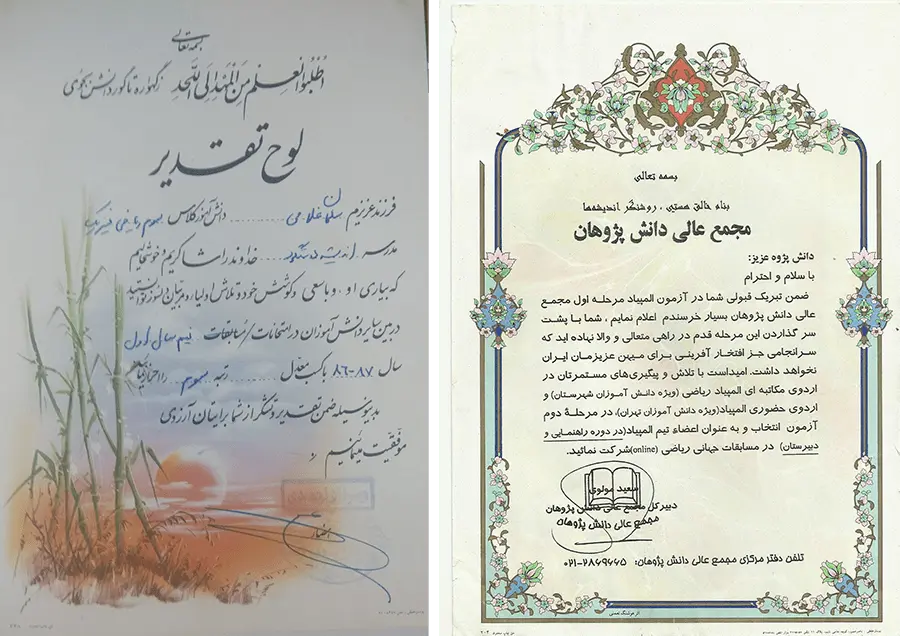 بسمه تعالی
اُطْلُبُوا الْعِلْمَ مِنَ الْمَهْدِ اِلَی اللَّحَدِ
زگهواره تا گور دانش بجوی
لوح تقدیر
فرزند عزیزم سلمان غلامی دانش آموز کلاس سوم ریاضی فیزیک
مدرسه اندیشه خداوند را شاکریم و خوشحالیم
که بیاری او، و با سعی و کوشش خود و تلاش اولیاء و مربیان دلسوز توانستید
در بین سایر دانش آموزان در امتحانات/مسابقات نیم سال اول
سال ۸۷-۸۶ با کسب معدل رتبه سوم را احراز نمائید
بدینوسیله ضمن تقدیر و تشکر از شما برایتان آرزوی
موفقیت مینمائیم
بسمه تعالی
بنام خالق هستی، روشنگر اندیشه‌ها
مجمع عالی دانش پژوهان
دانش پژوه عزیز:
با سلام و احترام
ضمن تبریک قبولی شما در آزمون المپیاد مرحله اول مجمع
عالی دانش پژوهان بسیار خرسندم اعلام نمایم ، شما با پشت
سر گذاردن این مرحله قدم در راهی متعالی و والا نهاده اید که
سرانجامی جز افتخار آفرینی برای میهن عزیزمان ایران
نخواهد داشت. امیداست با تلاش و پیگیری‌های مستمرتان در
اردوی مکاتبه ای المپیاد ریاضی (ویژه دانش آموزان شهرستان) و
اردوی حضوری المپیاد(ویژه دانش آموزان تهران)، در مرحلهٔ دوم
آزمون انتخاب و به عنوان اعضاء تیم المپیاد(در دوره راهنمایی و
دبیرستان) در مسابقات جهانی ریاضی (online)شرکت نمائید.
سعید مولوی
دبیرکل مجمع عالی دانش پژوهان
مجمع عالی دانش پژوهان
تلفن دفتر مرکزی مجمع عالی دانش پژوهان: ۰۲۱-۲۸۶۹۶۶۵